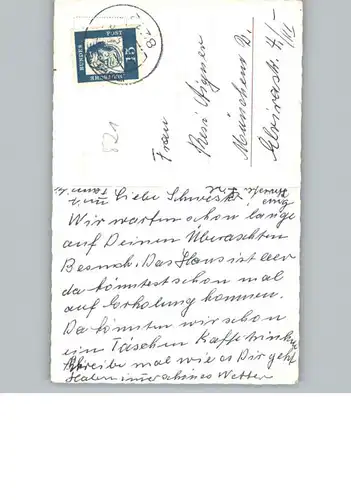 DEUTSCHE
BUNDES
POST
15
28
821
Frau
Resi Aigner
München 2.
Elvirastr. 7/-
/III
Liebe Schwester
Wir warten schon lange
auf Deinen Überaschten
Besuch. Das Haus ist leer
da könntest schon mal
auf Erholung kommen.
Da könnten wir schon
ein Täschen Kaffe trinken
Schreibe mal wie es Dir geht
Haben immer schönes Wetter